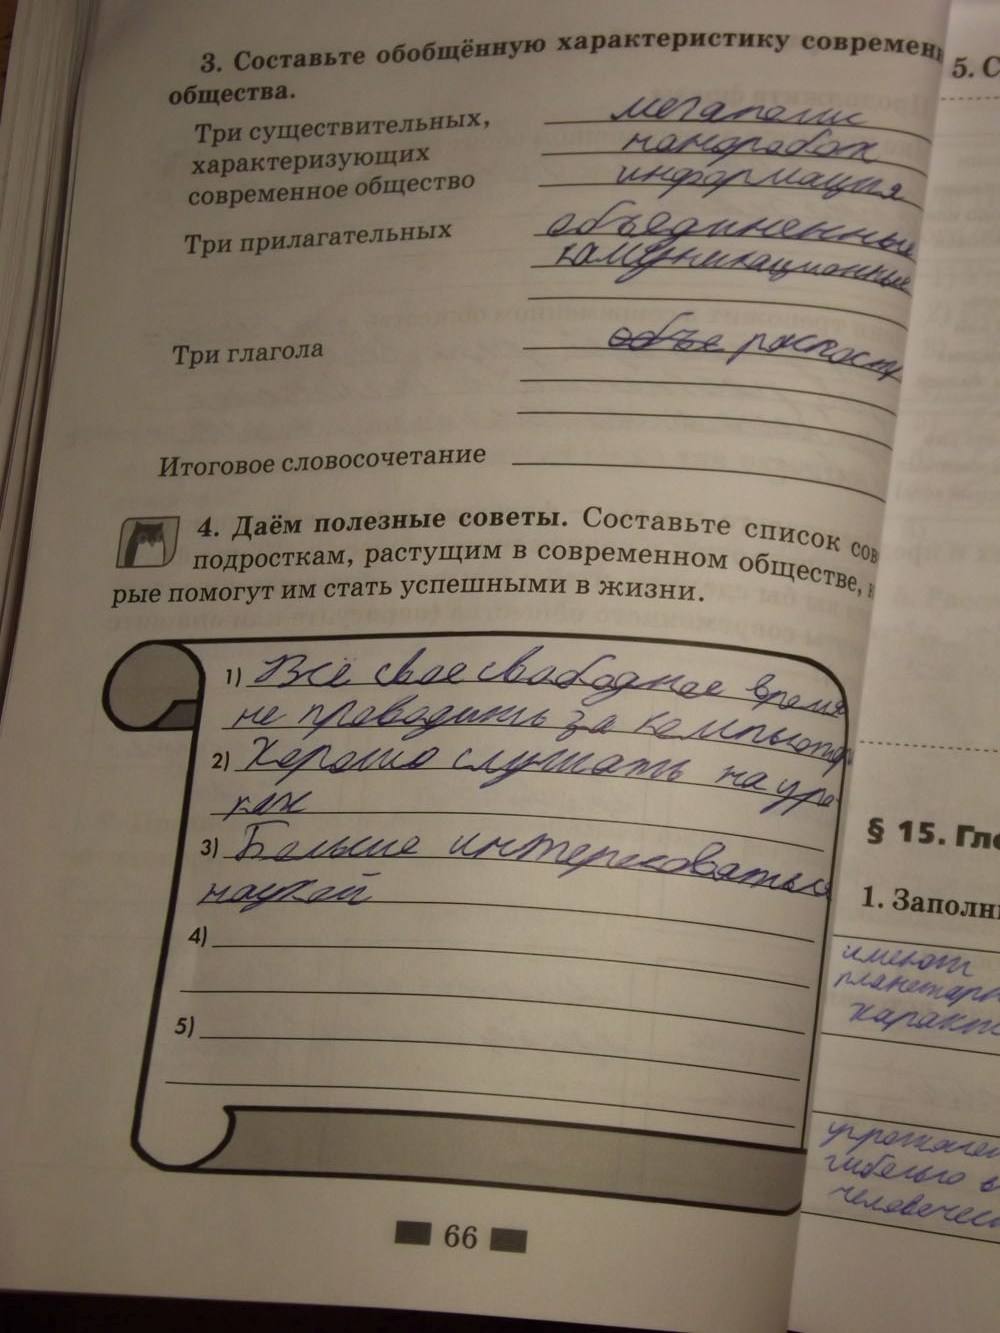 3. Составьте обобщённую характеристику современн
общества.
Три существительных,
характеризующих
современное общество
мегаполис
наноробот
информация
Три прилагательных
объединенные
коммуникационные
Три глагола
объе
Итоговое словосочетание
4. Даём полезные советы. Составьте список сов
подросткам, растущим в современном обществе, к
рые помогут им стать успешными в жизни.
1) Всё свое свободное время
не проводить за компьютер
2) Хорошо слушать на уро-
ках
3) Больше интересоваться
наукой
4)
5)
66
5. С
§ 15. Гло
1. Заполни
имеют
планетарн
характе
гибелью в
человечес